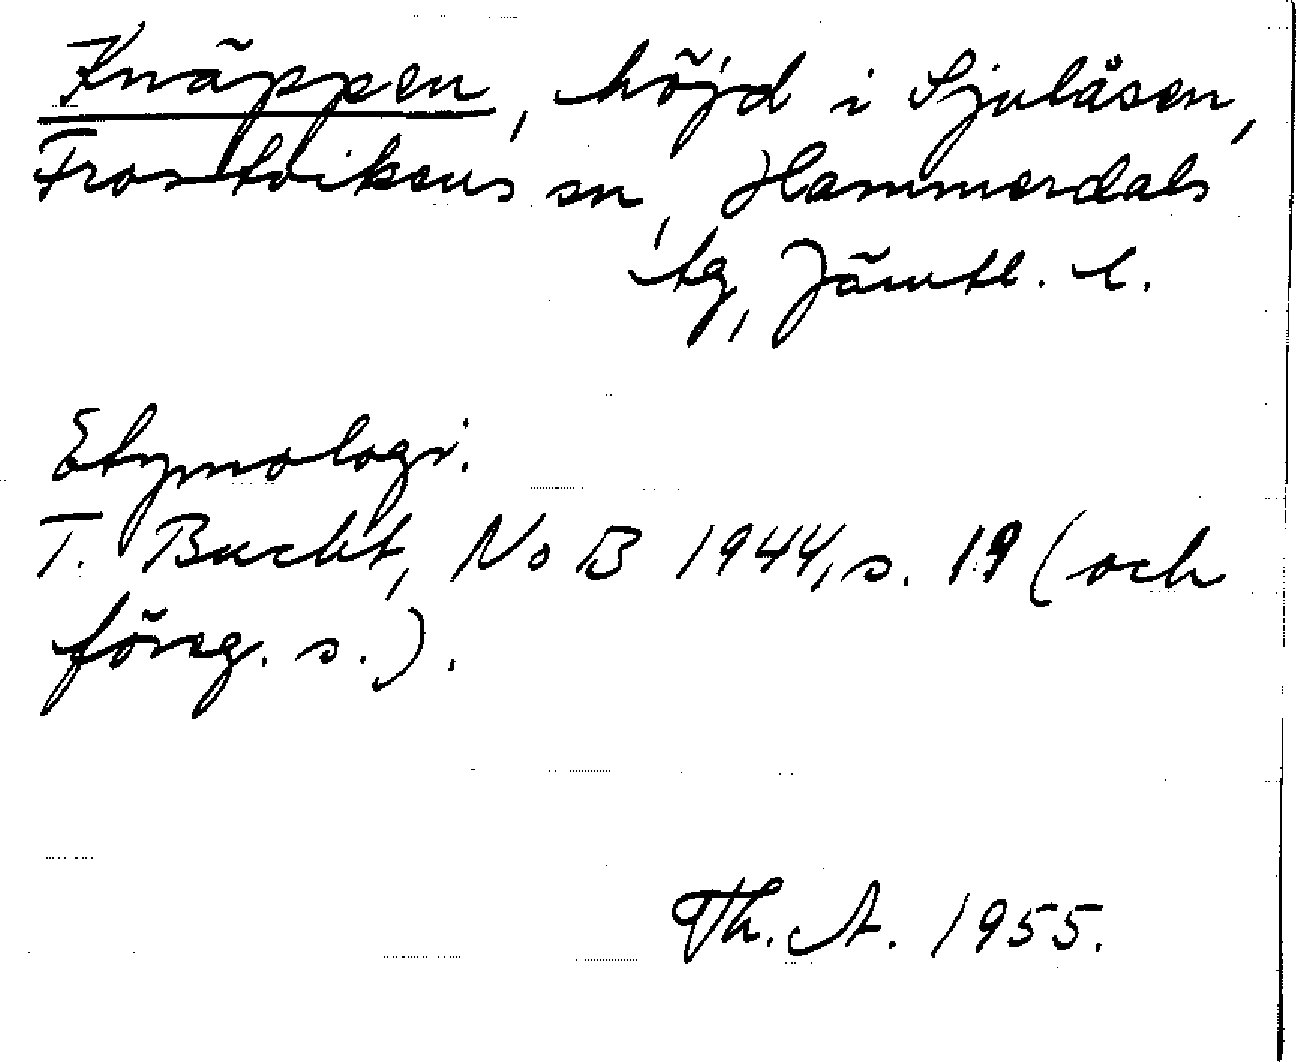 Knäppen, höjd i Sjulåsen,
Frostvikens sn, Hammerdals
tg, Jämtl. l.
Etymologi:
T. Bucht, NoB 1944, s. 19 (och
föreg. s.).
Th. A. 1955.